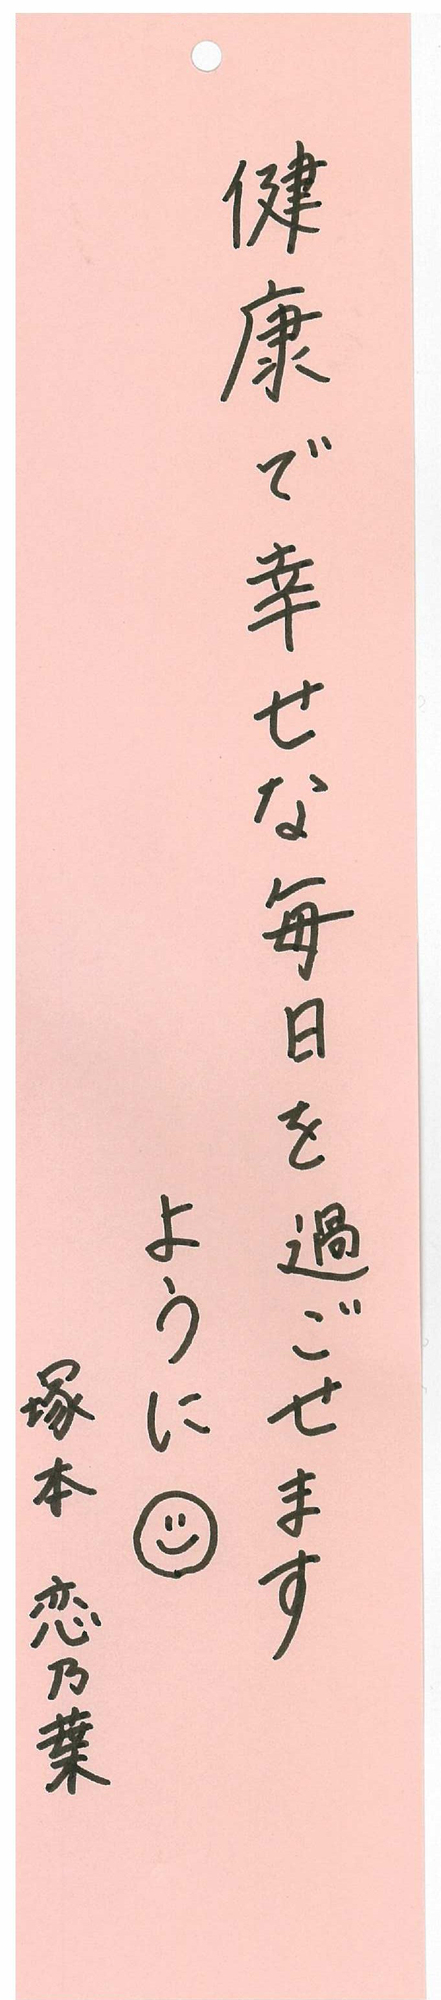 健康で幸せな毎日を過ごせます
ように
塚本 恋乃葉